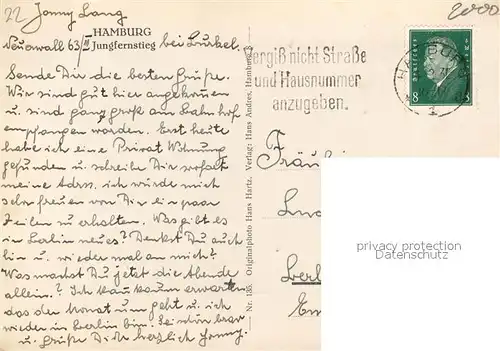 22 Jonny Lang
2000
HAMBURG
Jungfernstieg
Neuerwall 63/III bei Lunkel.
Sende Dir die besten Grüße.
Wir sind gut hier angekommen
u. sind ganz groß am Bahnhof
empfangen worden. Erst heute
habe ich eine Privat Wohnung
gefunden u. schreibe Dir sofort
meine Adrss. ich würde mich
sehr freuen von Dir ein paar
Zeilen zu erhalten. Was gibt es
in Berlin neues? Denkst Du auch
hin u. wieder mal an mich?
Was machst Du jetzt die Abende
allein? Ich kann kaum erwarten
das der Monat um geht u. ich
wieder in Berlin bin. Sei schön brav
u. grüße Dich herzlich Jonny.
Nr. 155. Originalphoto Hans Hartz. Verlag: Hans Andres, Hamburg
Vergiß nicht Straße
und Hausnummer
anzugeben.
HAMBURG
1
8 8
Fräu
Berl
privacy protection
Datenschutz